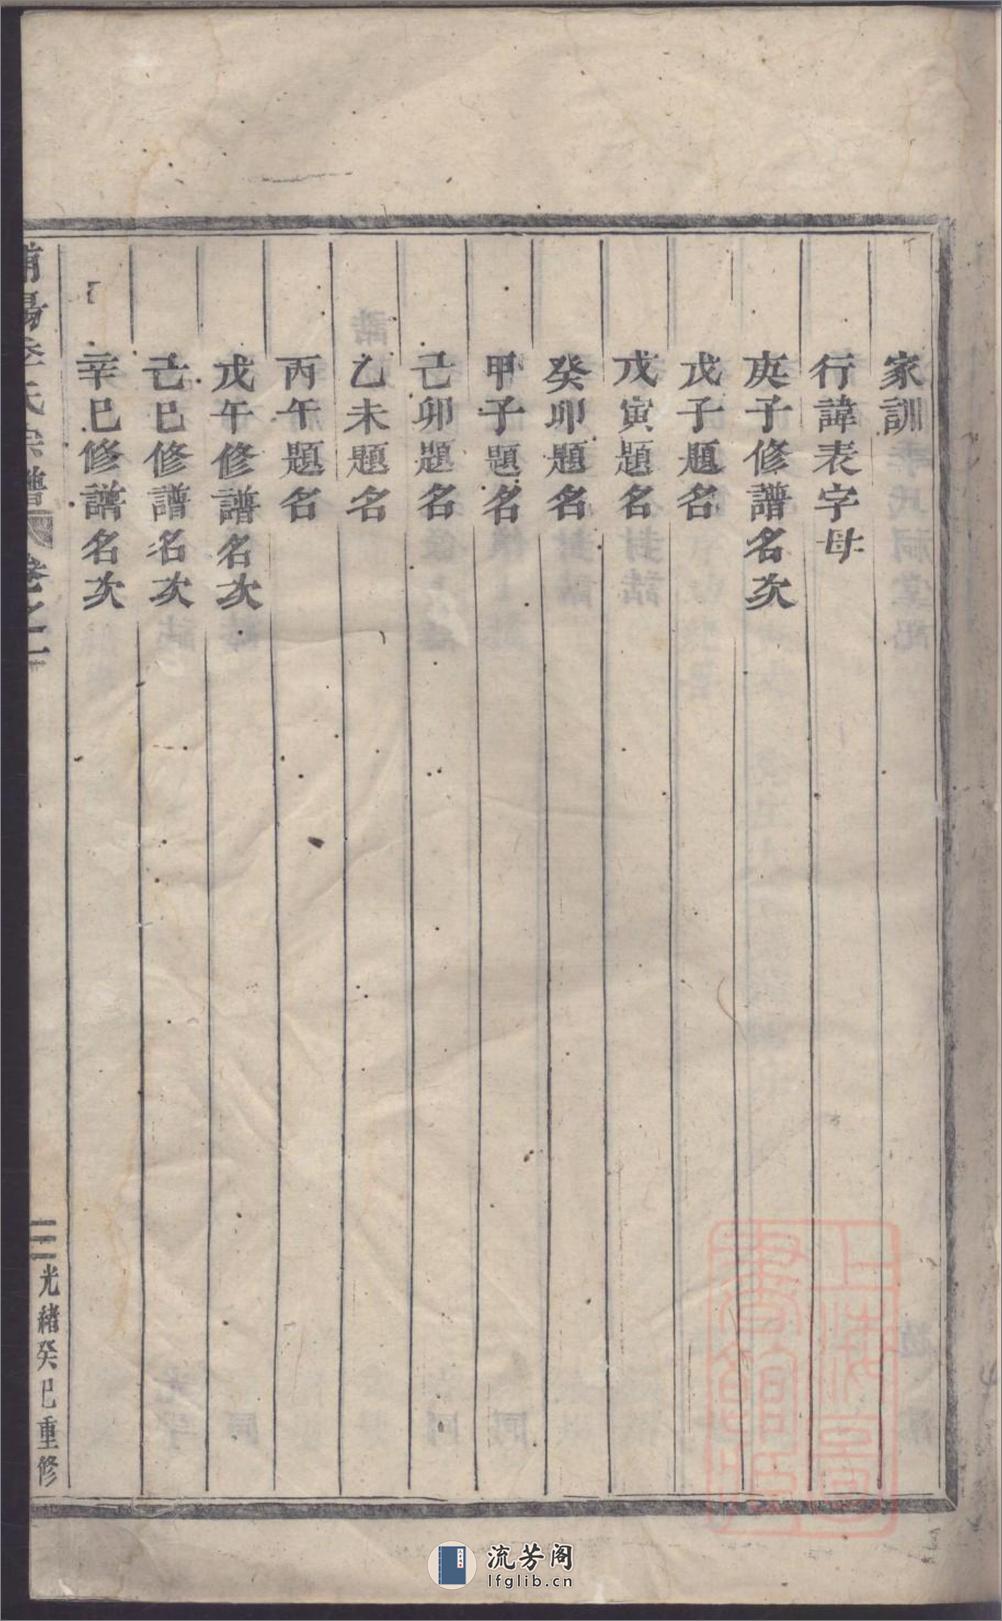 家訓
行諱表字母
庚子修譜名次
戊子題名
戊寅題名
癸卯題名
甲子題名
己卯題名
乙未題名
丙午題名
戊午修譜名次
己巳修譜名次
辛巳修譜名次
氏宗譜 卷之一
三 光緒癸巳重修
上海圖書館藏
流芳阁
lfglib.cn